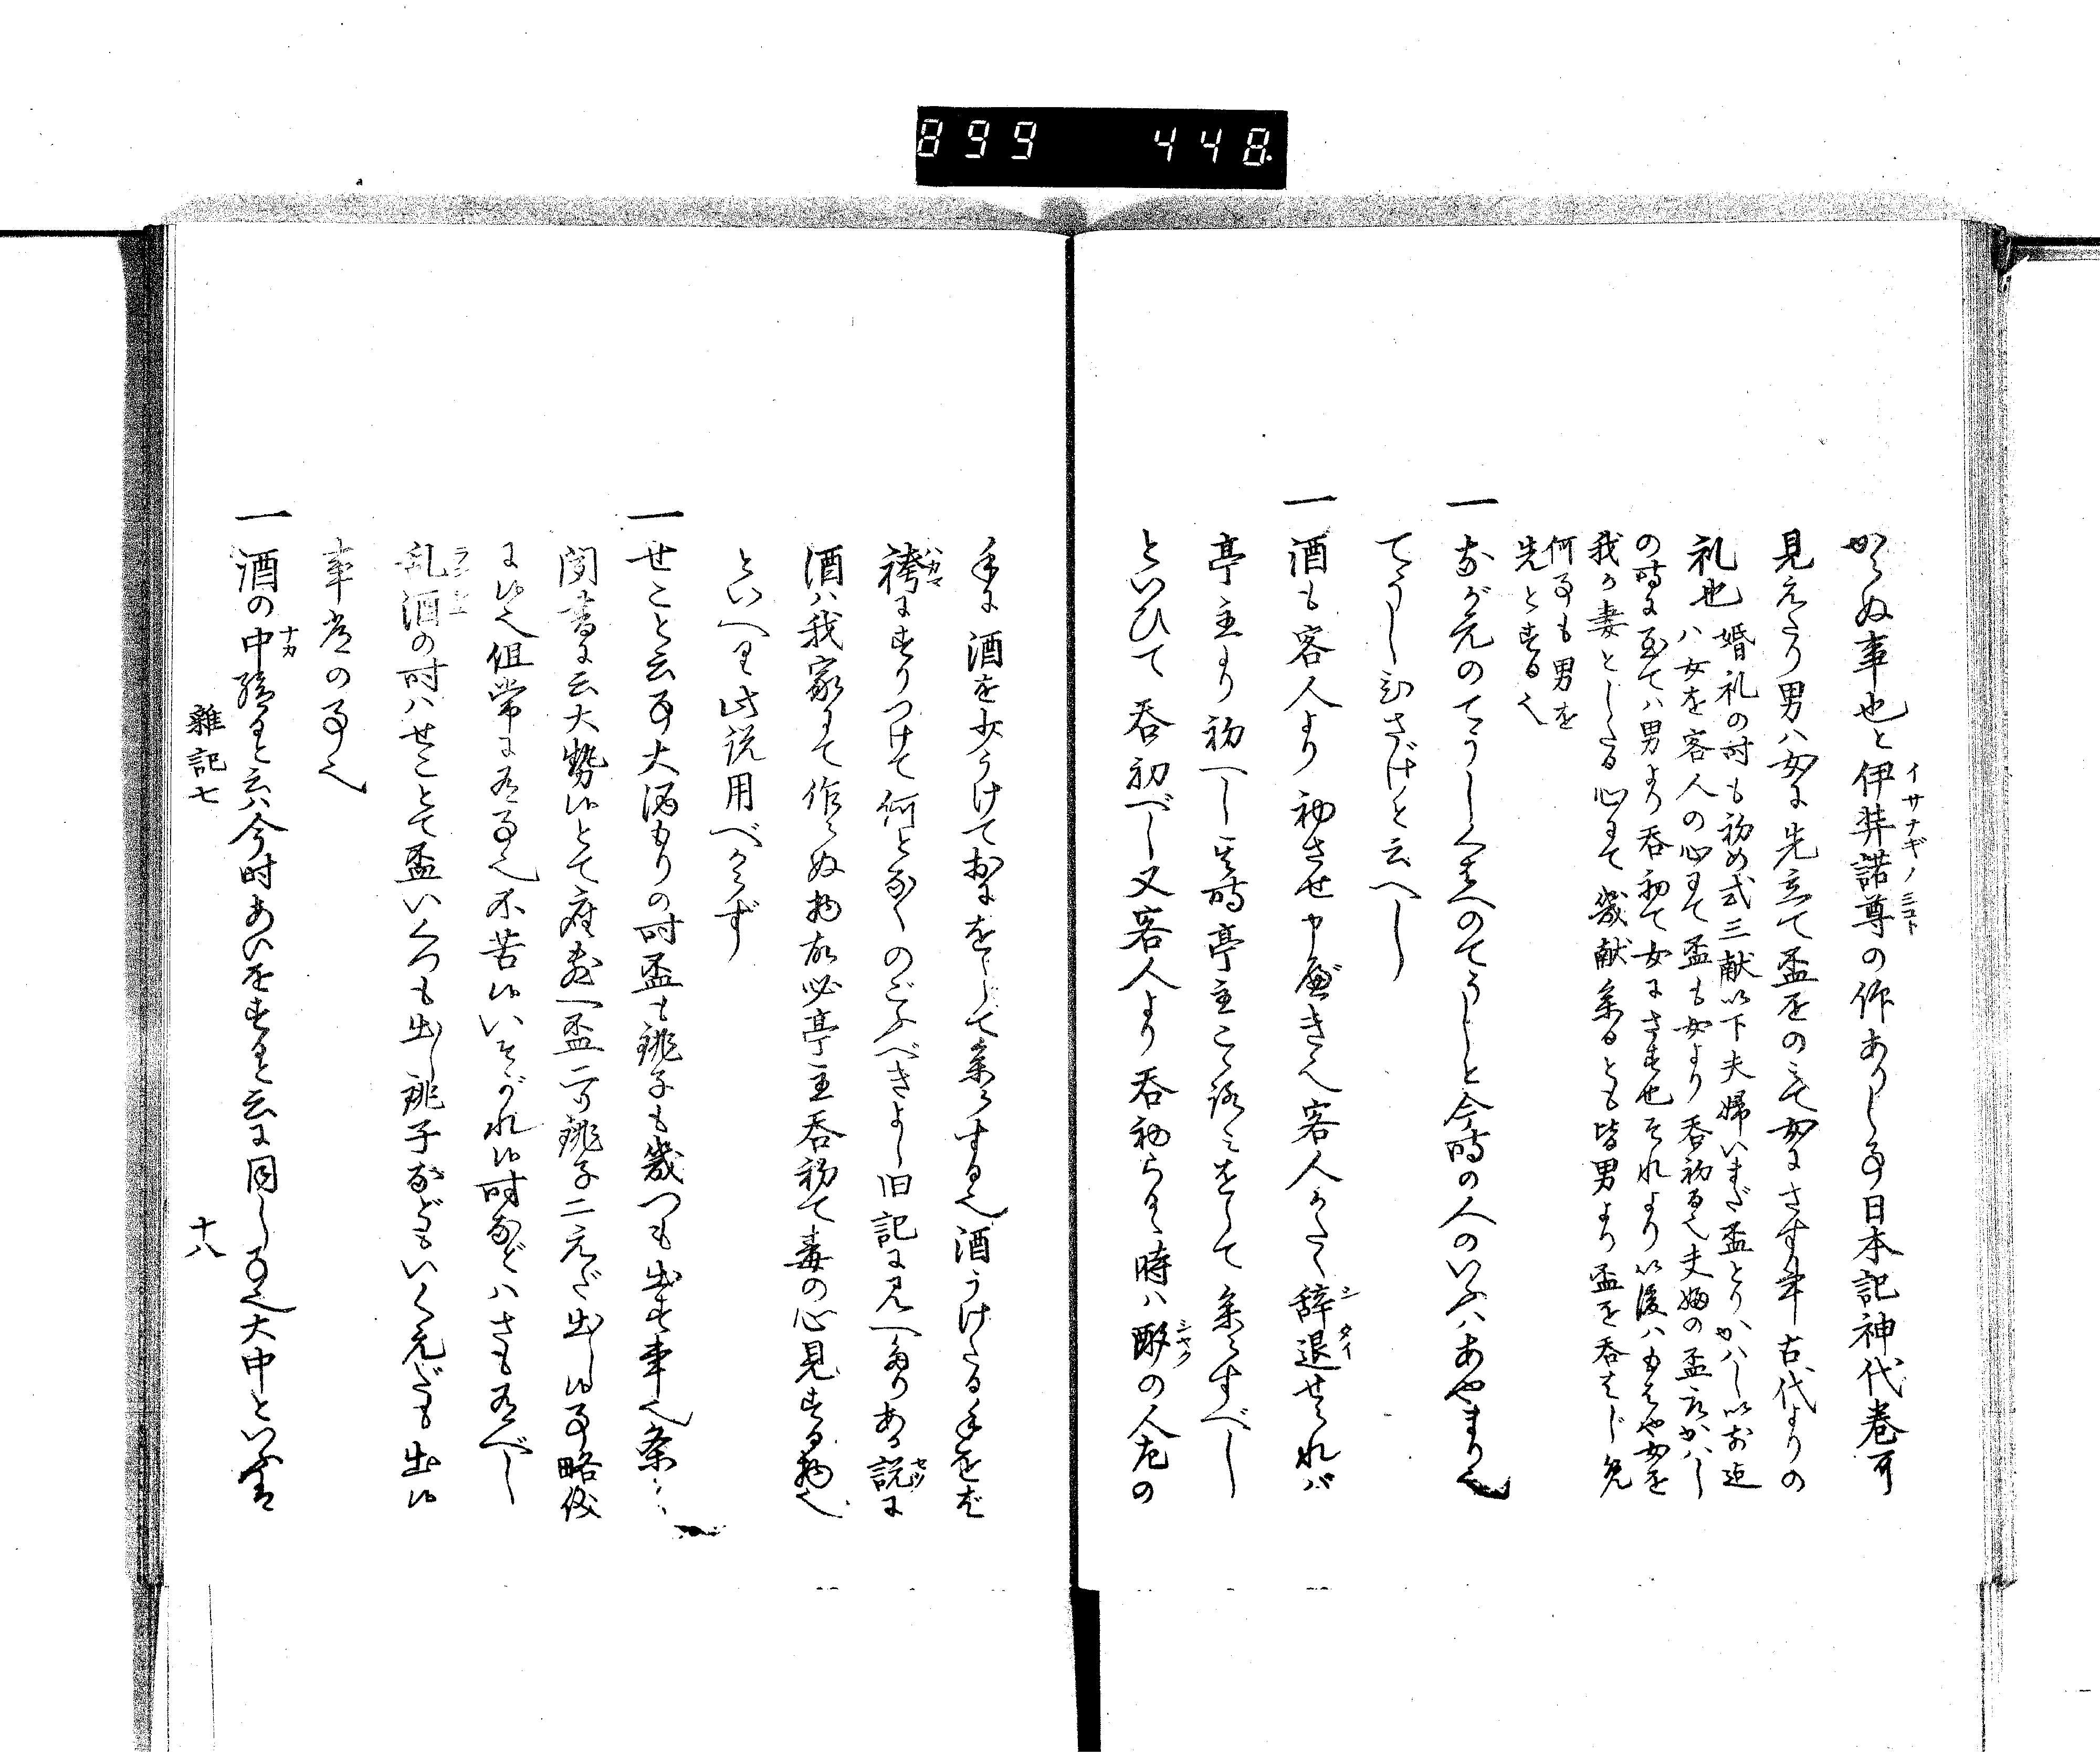 899 448
からぬ事也と伊弉諾尊の仰ありし事日本記神代巻ニ
イサナギノミコト
見えたり男ハ女に先立て盃をのミて女にさす事古代よりの
礼也
婚礼の時も初め式三献以下夫婦いまだ盃とりかハし以前迄
ハ女を客人の心にて盃も女より呑初る也夫婦の盃取かハし
の時に至てハ男より呑初て女にさす也それより以後ハもはや女を
我か妻としたる心にて幾献参るとも皆男より盃を呑はじめ
何事も男を
先とする也
一
ながえのてうし
のてうしと今時の人のいふハあやまり也
てうしひさげと云へし
一酒も客人より初させ申
客人かたく辞退せられバ
シタイ
亭主より初へし其時亭主こゝろミをして参らすべし
といひて呑初べし又客人より呑初らるゝ時ハ酌の人左の
シヤク
手に酒を少うけて
をして参らする也酒うけたる手をば
袴にすりつけて何となくのごふべきよし旧記に見へたりある説に
ハカマ
セツ
酒ハ我家にて作らぬ物故必亭主呑初て毒の心見する物也
といへり此説用べからず
一せこと云事大酒もりの時盃も銚子も幾つも出す事也条々
聞書に云大勢候とて座敷へ盃二ツ銚子二えだ出し候事略儀
に候也但常に有事也不苦候いそがれ候時などハさも有べし
乱酒の時ハせことて盃いくつも出し銚子などもいくえだも出候
事常の事也
一酒の中
と云ハ今時あいをすると云に同し事也大中といふハ
ナカ
雜記七
十八